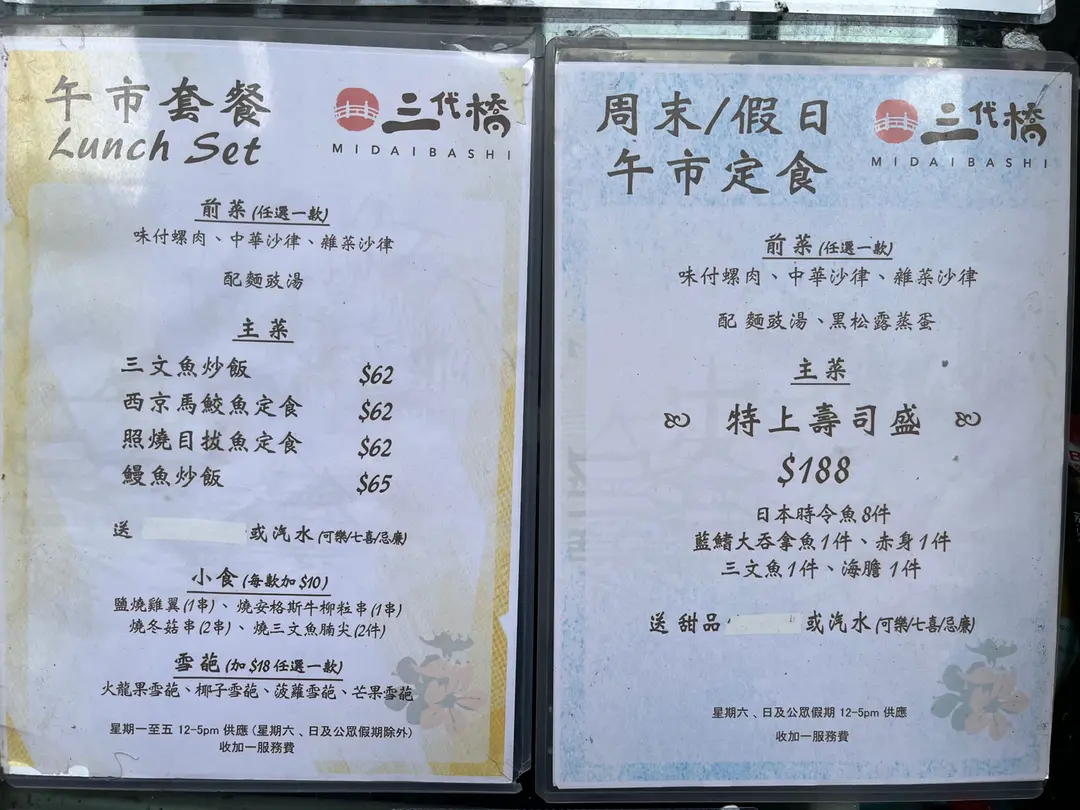 午市套餐
Lunch Set
三代橋
MIDAIBASHI
前菜 (任選一款)
味付螺肉、中華沙律、雜菜沙律
配麵豉湯
主菜
三文魚炒飯 $62
西京馬鮫魚定食 $62
照燒目拔魚定食 $62
鰻魚炒飯 $65
送 或汽水 (可樂/七喜/忌廉)
小食 (每款加 $10)
鹽燒雞翼(1串)、燒安格斯牛柳粒串(1串)
燒冬菇串(2串)、燒三文魚腩尖(2件)
雪葩 (加 $18 任選一款)
火龍果雪葩、椰子雪葩、菠蘿雪葩、芒果雪葩
星期一至五 12-5pm 供應 (星期六、日及公眾假期除外)
收加一服務費
周末/假日
午市定食
三代橋
MIDAIBASHI
前菜 (任選一款)
味付螺肉、中華沙律、雜菜沙律
配 麵豉湯、黑松露蒸蛋
主菜
特上壽司盛
$188
日本時令魚8件
藍鰭大吞拿魚1件、赤身1件
三文魚1件、海膽 1件
送 甜品 或汽水 (可樂/七喜/忌廉)
星期六、日及公眾假期 12-5pm 供應
收加一服務費